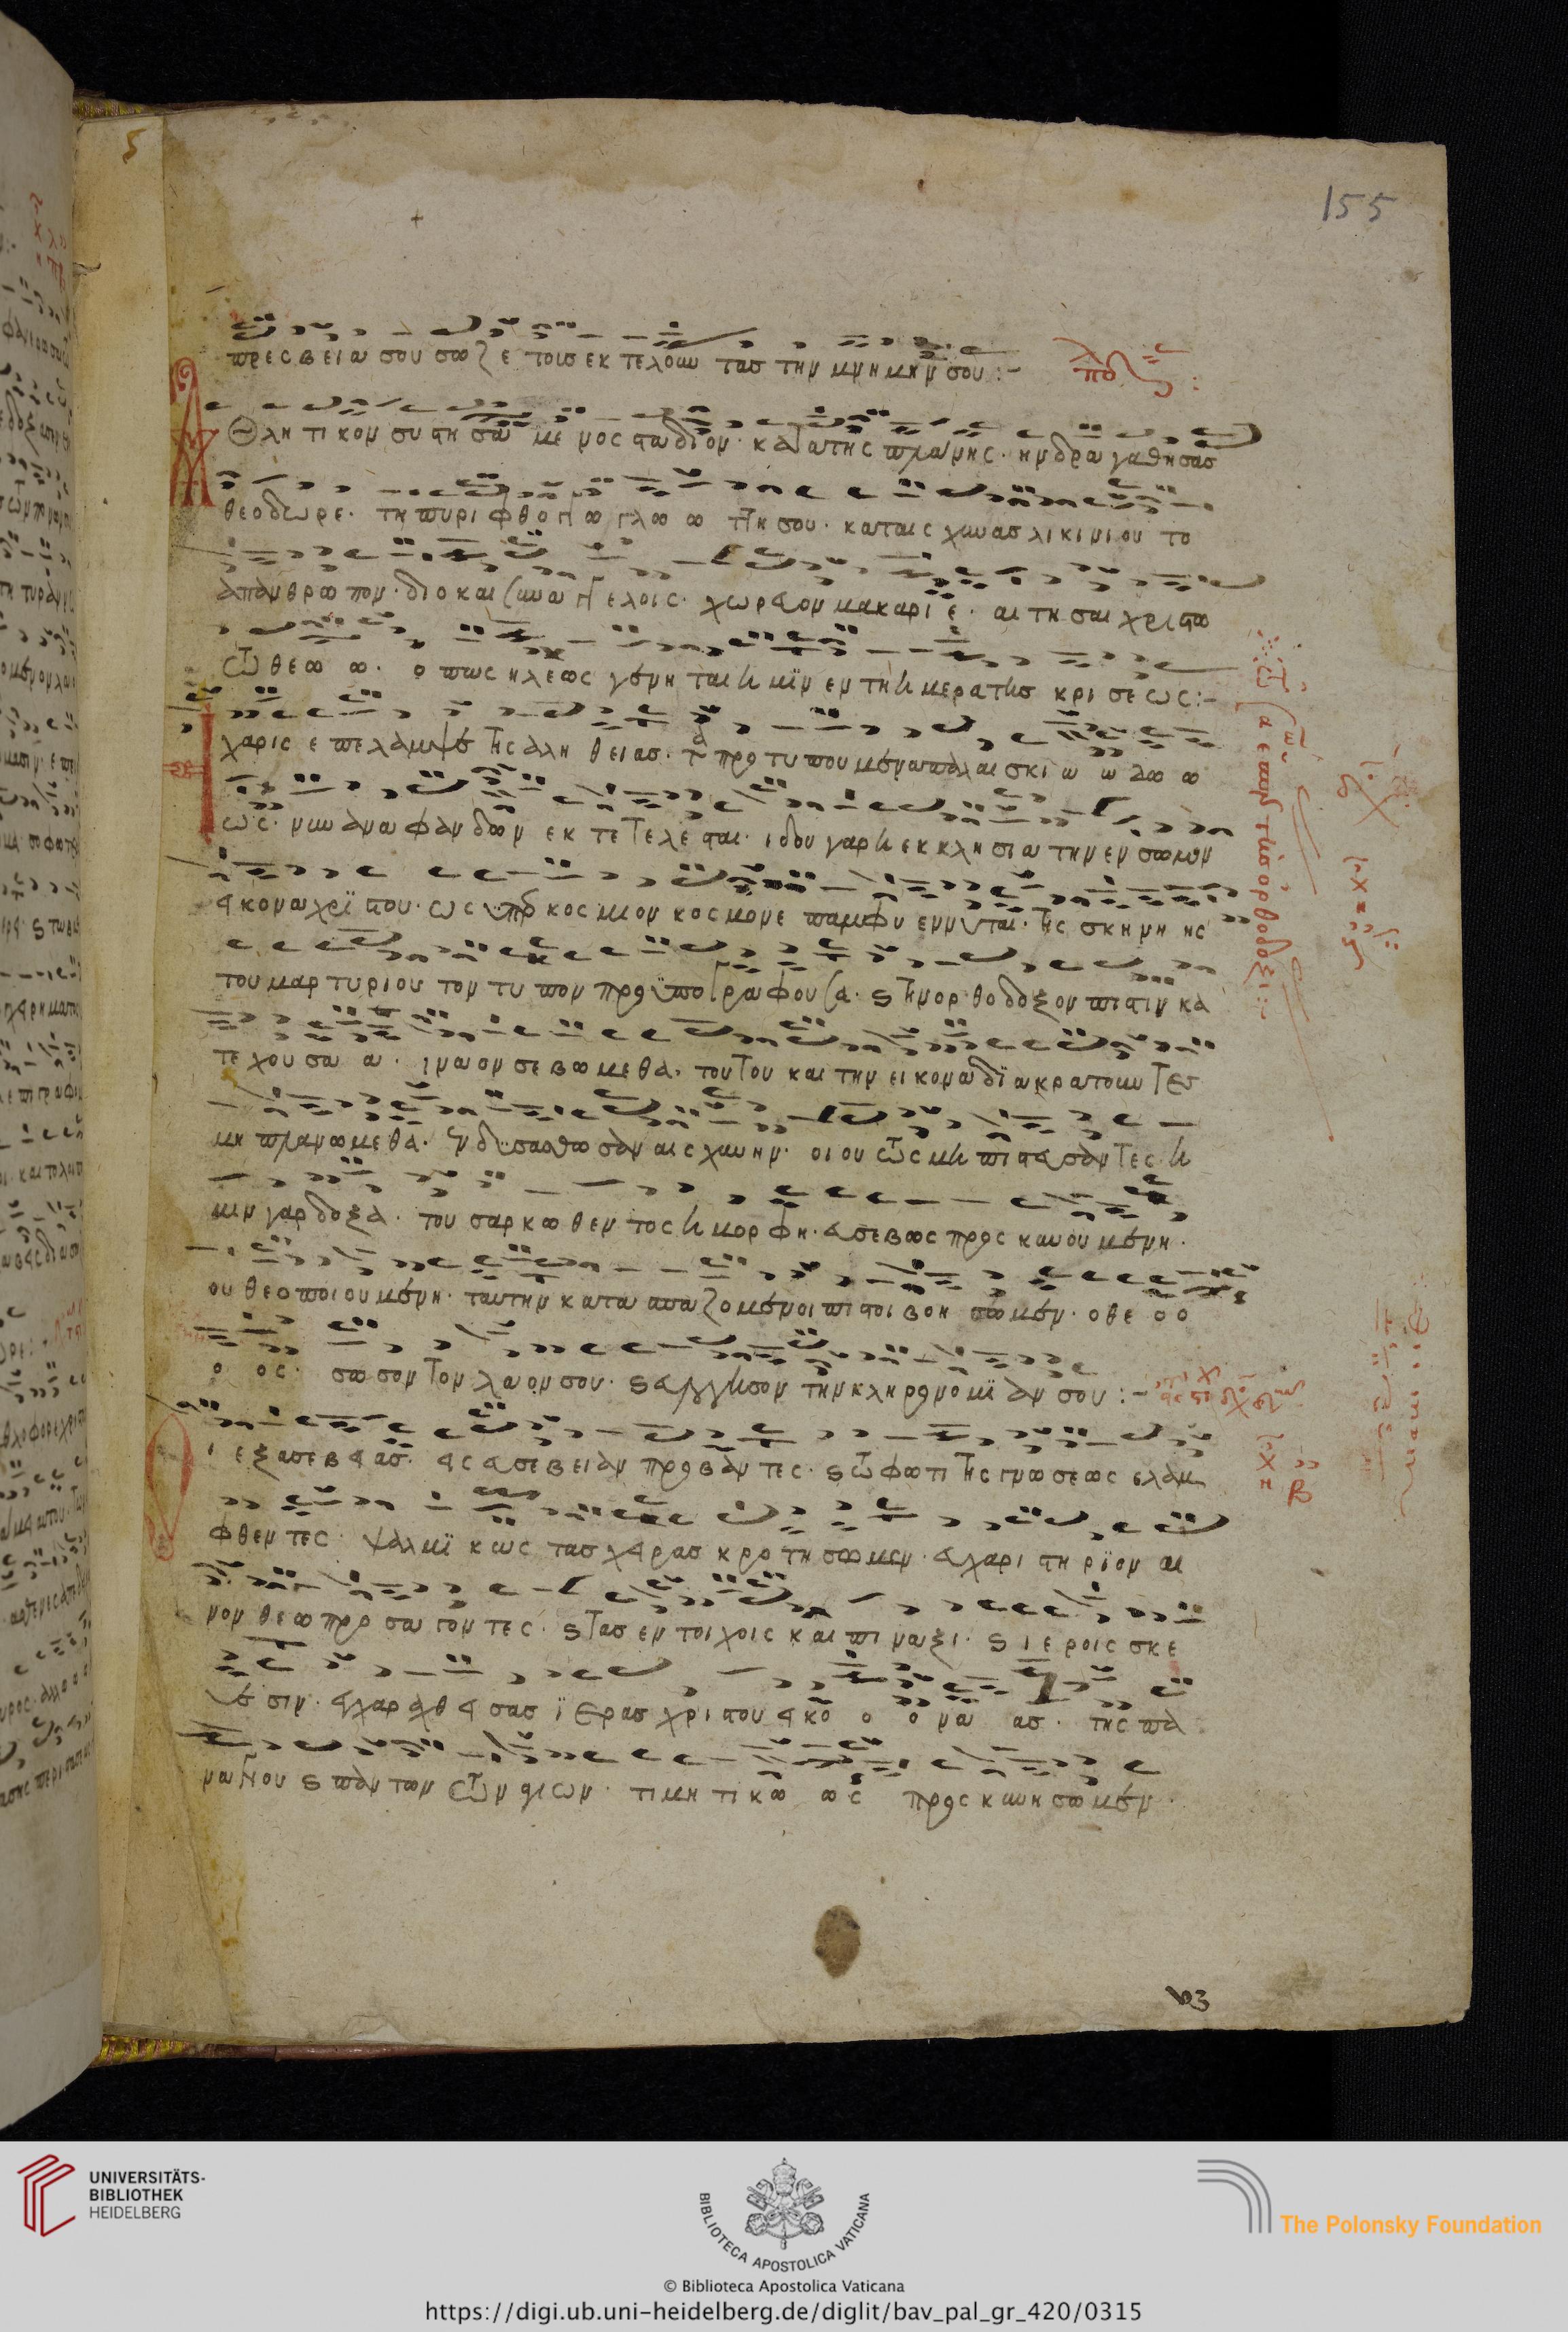 155
πρεσβεια σου σωζε τους εκτελουντας την μνημην σου :-
Αθλητικον συστησαμενος σταδιον · κατα της πλανης · ηνδραγαθησας
θεοδωρε · τη πυρι φθογγω γλωωττη σου · καταισχυνας λικινιον το
απανθρωπον · διο και συν αγγελοις · χωρευον μακαριε · αιτησαι χριστω
τω θεω ω · οπως ηλεως γενηται ημιν εν τη ημερα της κρισεως :-
η χαρις επελαμψε της αληθειας · τα προτυπουμενα παλαι σκια α δω ω
ως · νυν αναφανδων εκτετελεσται · ιδου γαρ η εκκλησια την ενσωμον
εικονα χριστου · ως υπερκοσμιον κοσμον επαμφιεννυται · της σκηνης
του μαρτυριου τον τυπον προϋπογραφουσα · και την ορθοδοξον πιστιν κα
τεχουσα α · ινα ον σεβωμεθα · τουτου και την εικονα διακρατουντες
μη πλανωμεθα · ενδυσασθωσαν αισχυνην · οι ουτως μη πιστευσαντες η
μιν γαρ δοξα · του σαρκωθεντος η μορφη · ευσεβως προσκυνουμενη ·
ου θεοποιουμενη · ταυτην κατασπαζομενοι πιστοι βοησωμεν · ο θε ο ο
ο ος · σωσον τον λαον σου · και ευλογησον την κληρονομιαν σου :-
Οι εξ ασεβειας · εις ευσεβειαν προβαντες · και τω φωτι της γνωσεως ελαμ
φθεντες · ψαλμικως τας χειρας κροτησωμεν · ευχαριστηριον αι
νον θεω προσαγοντες · και τας εν τοιχοις και πιναξι · και ιεροις σκε
υεσιν · εγχαραχθεισας ϊερας χριστου εικο ο ο να ας · της πα
ναγνου και παντων των αγιων · τιμητικω ως προσκυνησωμεν ·
UNIVERSITÄTS-
BIBLIOTHEK
HEIDELBERG
BIBLIOTECA APOSTOLICA VATICANA
The Polonsky Foundation
© Biblioteca Apostolica Vaticana
https://digi.ub.uni-heidelberg.de/diglit/bav_pal_gr_420/0315